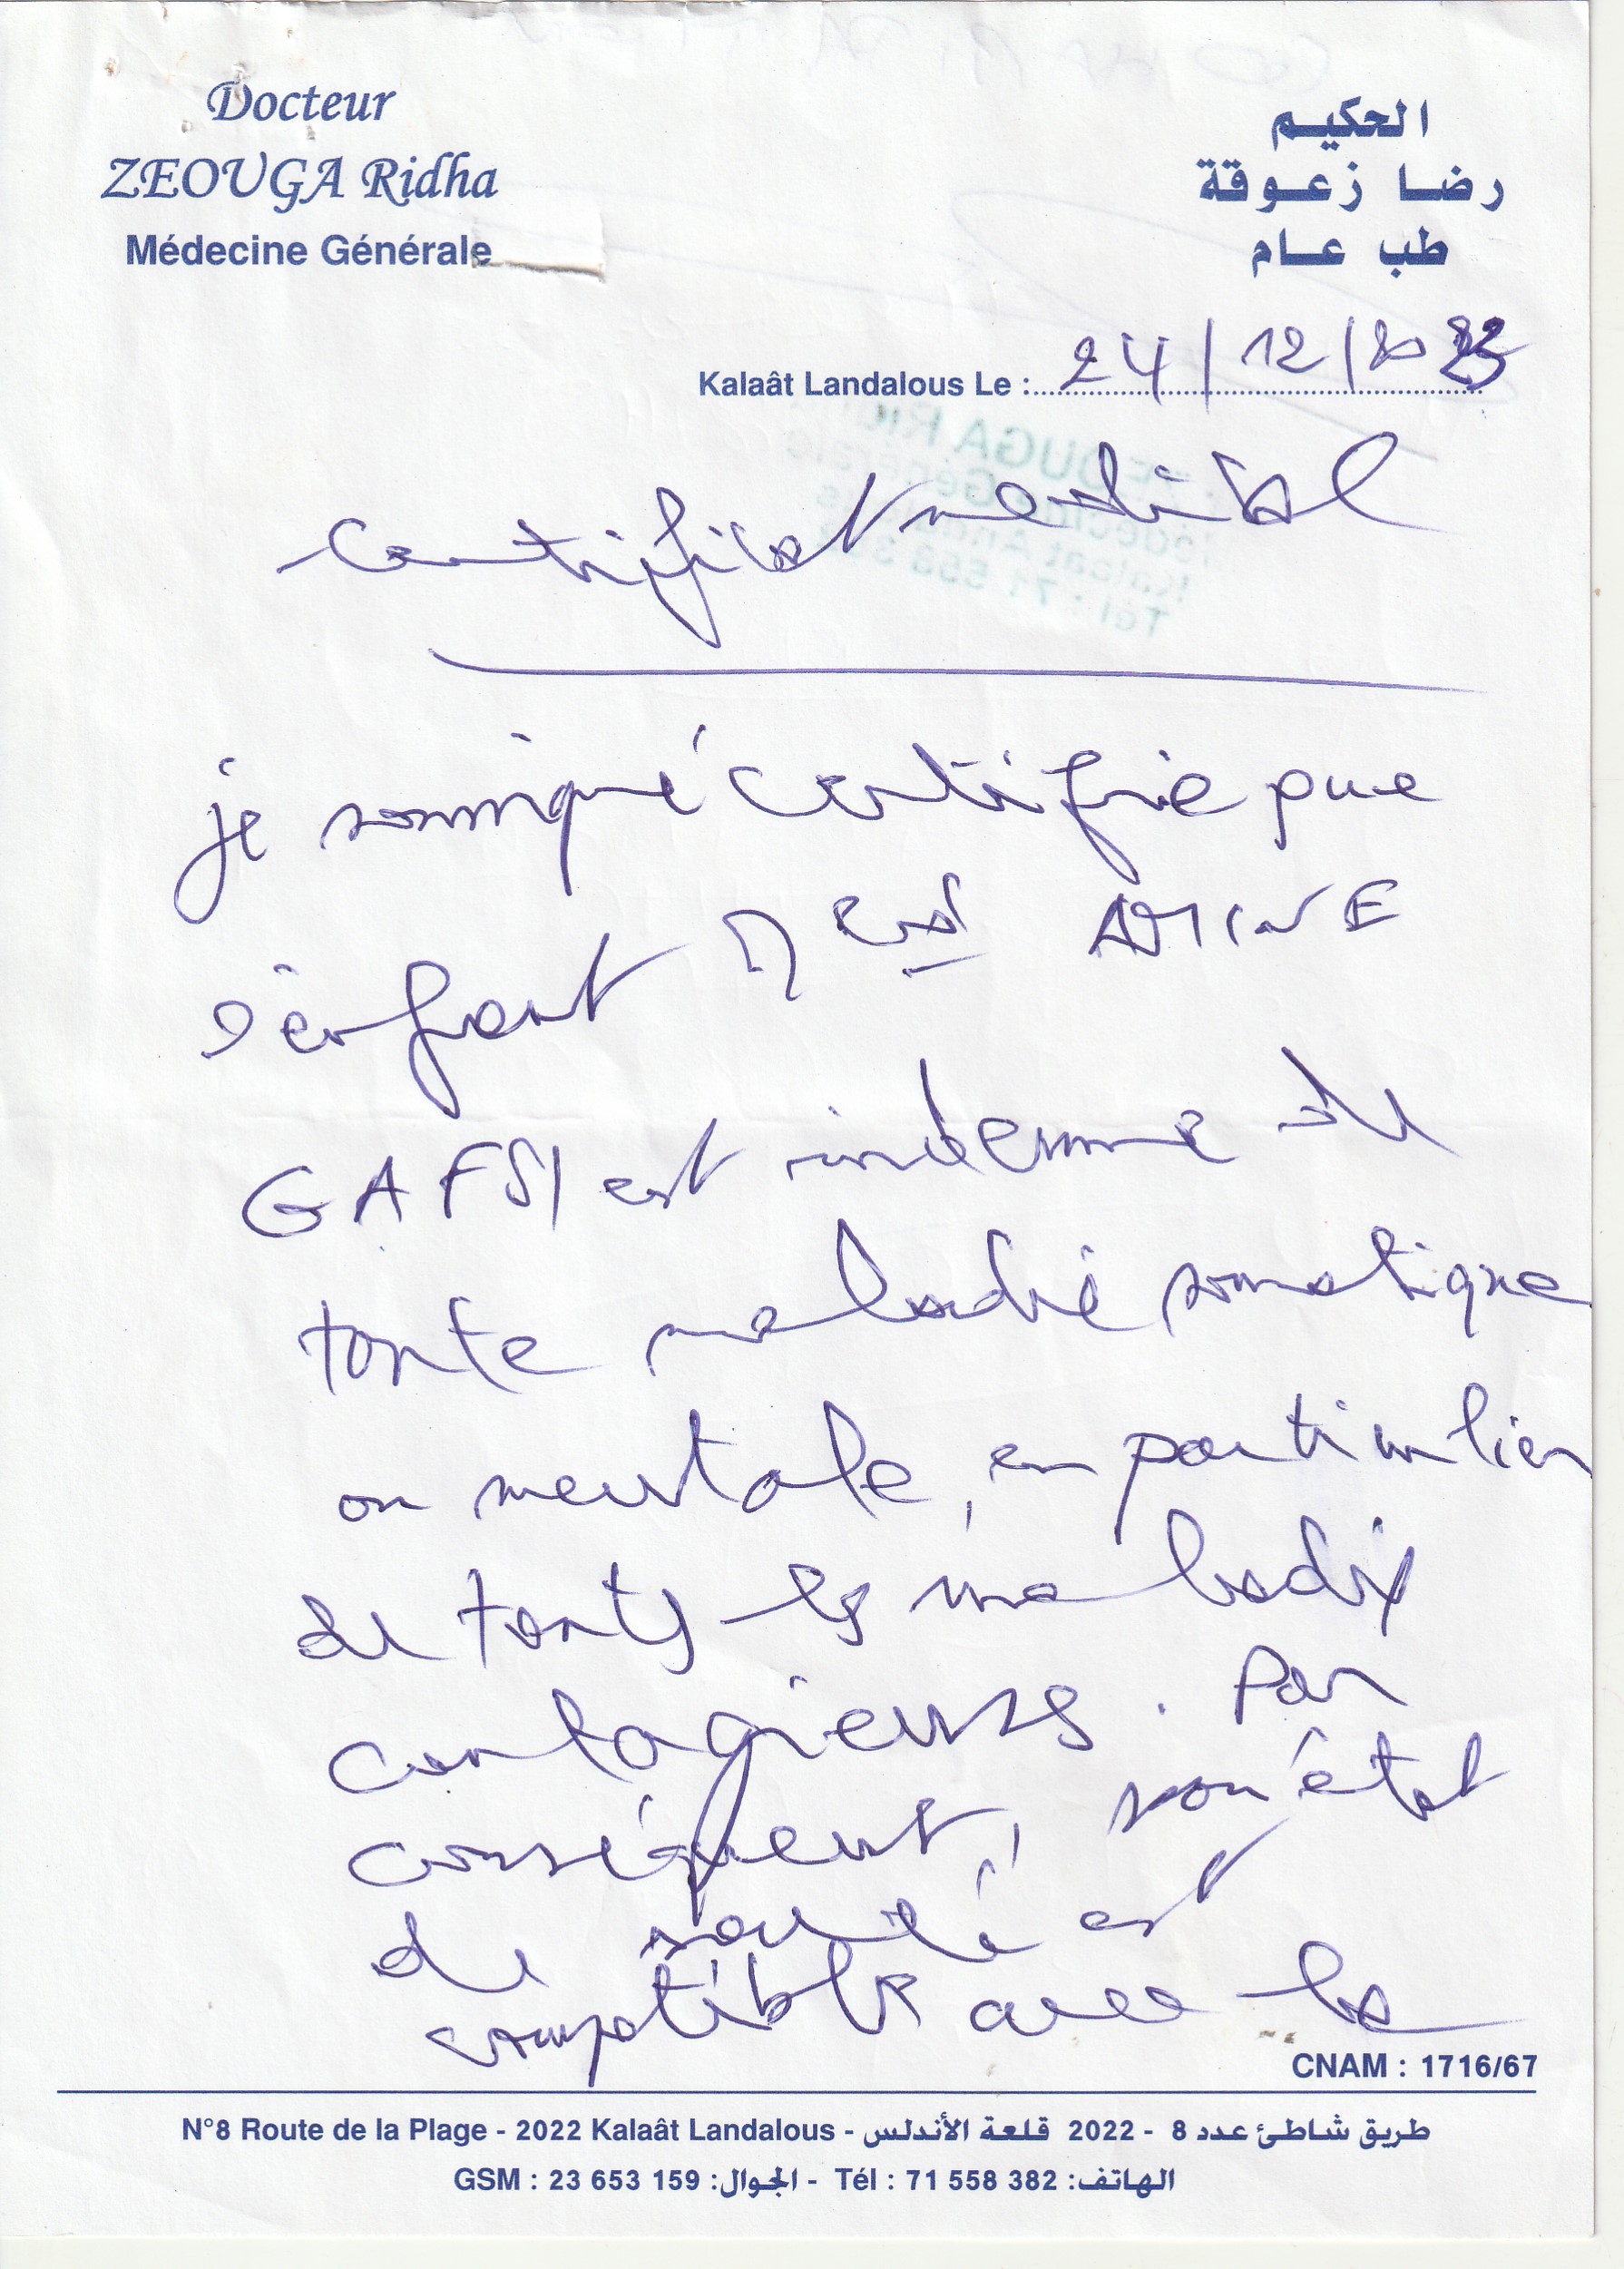 Docteur
ZEOUGA Ridha
Médecine Générale
الحكيم
رضا زعوقة
طب عام
Kalaât Landalous Le : 24/12/2023
Certificat médical
je soussigné certifie que
l'enfant Med AMINE
GAFSI est indemne de
toute maladie somatique
ou mentale, en particulier
de toutes les maladies
contagieuses. Par
conséquent, son état
de santé est
compatible avec la
CNAM : 1716/67
N°8 Route de la Plage - 2022 Kalaât Landalous - طريق شاطئ عدد 8 - 2022 قلعة الأندلس
GSM : 23 653 159 :الجوال - Tél : 71 558 382 :الهاتف